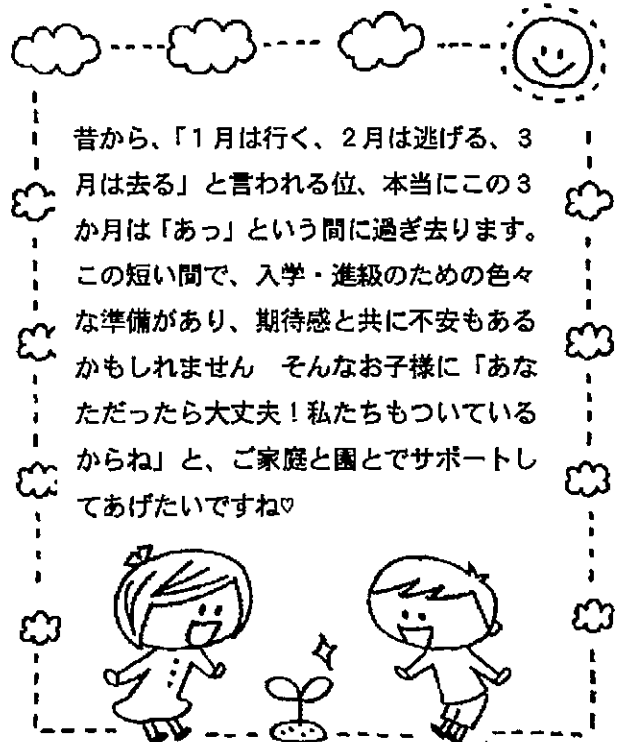 昔から、「1月は行く、2月は逃げる、3
月は去る」と言われる位、本当にこの3
か月は「あっ」という間に過ぎ去ります。
この短い間で、入学・進級のための色々
な準備があり、期待感と共に不安もある
かもしれません　そんなお子様に「あな
ただったら大丈夫！私たちもついている
からね」と、ご家庭と園とでサポートし
てあげたいですね♡